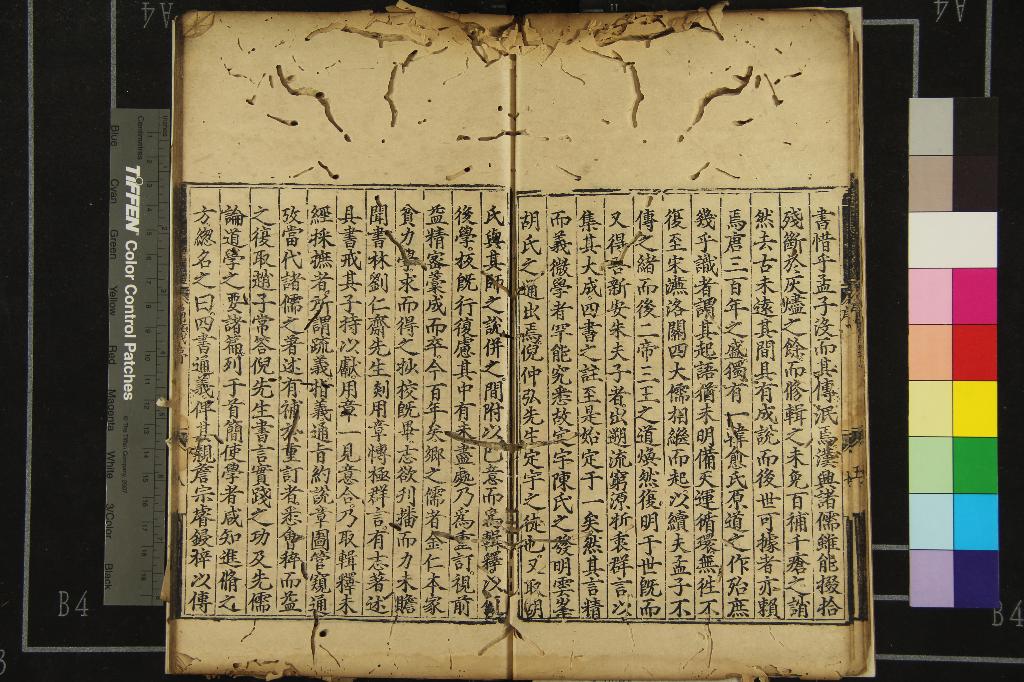 書惜乎孟子沒而其傳泯焉漢興諸儒雖能掇拾
殘斷於灰燼之餘而修輯之未免百補千瘡之誚
然去古未遠其間具有成說而後世可據者亦賴
焉唐三百年之盛獨有一韓愈氏原道之作殆庶
幾乎識者謂其起語猶未明備天運循環無往不
復至宋濂洛關四大儒相繼而起以續夫孟子不
傳之緒而後二帝三王之道煥然復明于世既而
又得吾新安朱夫子者出朔流窮源折衷群言以
集其大成四書之註至是始定于一矣然其言精
而義微學者罕能究悉故定宇陳氏之發明雲峯
胡氏之通出焉倪仲弘先生定宇之徒也又取胡
氏與其師之說併之間附以己意而為輯釋以
後學抜旣行復慮其中有未盡處乃為重訂視前
益精密藁成而卒今百年矣鄉之儒者金仁本家
貧力學求而得之抄校旣畢志欲刋播而力未贍
聞書林劉仁齋先生剡用章博極群言有志著述
具書戒其子持以獻用章一見意合乃取輯釋未
經採摭者所謂疏義指義通旨約說章圖管窺通
攷當代諸儒之著述有補於重訂者悉會稡而益
之後取趙子常答倪先生書言實踐之功及先儒
論道學之要諸篇列于首簡使學者咸知進脩之
方總名之曰四書通義俾其親詹宗睿鋟梓以傳
B4
A4
A4
B4
TIFFEN Color Control Patches
© The Tiffen Company, 2007
Centimetres
Inches
Blue
Cyan
Green
Yellow
Red
Magenta
White
3/Color
Black